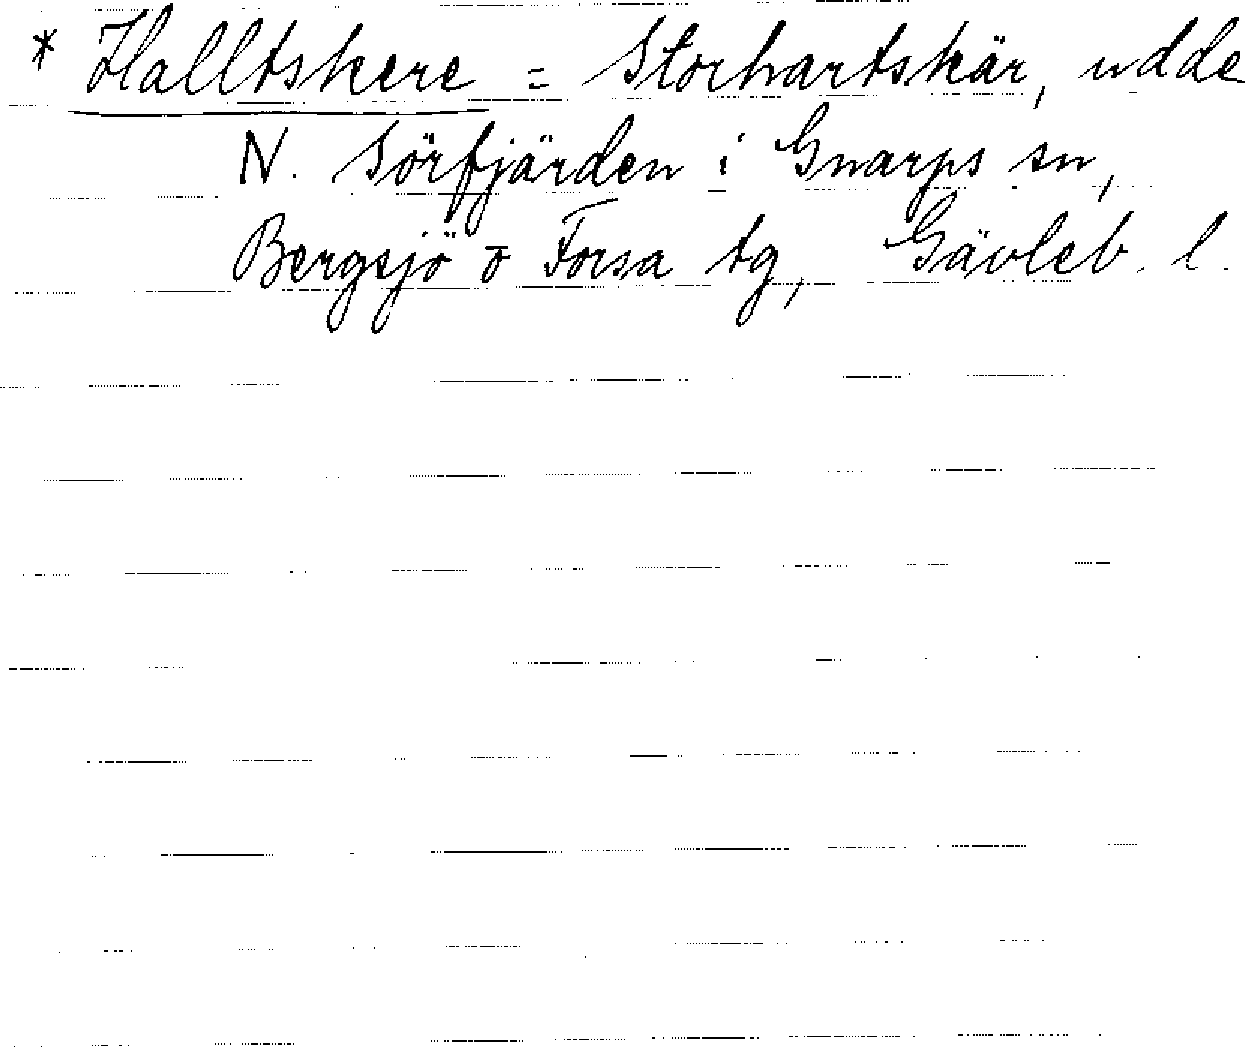 * Halltskere = Storhartskär, udde
N. Sörfjärden i Gnarps sn,
Bergsjö o Forsa tg, Gävleb. l.